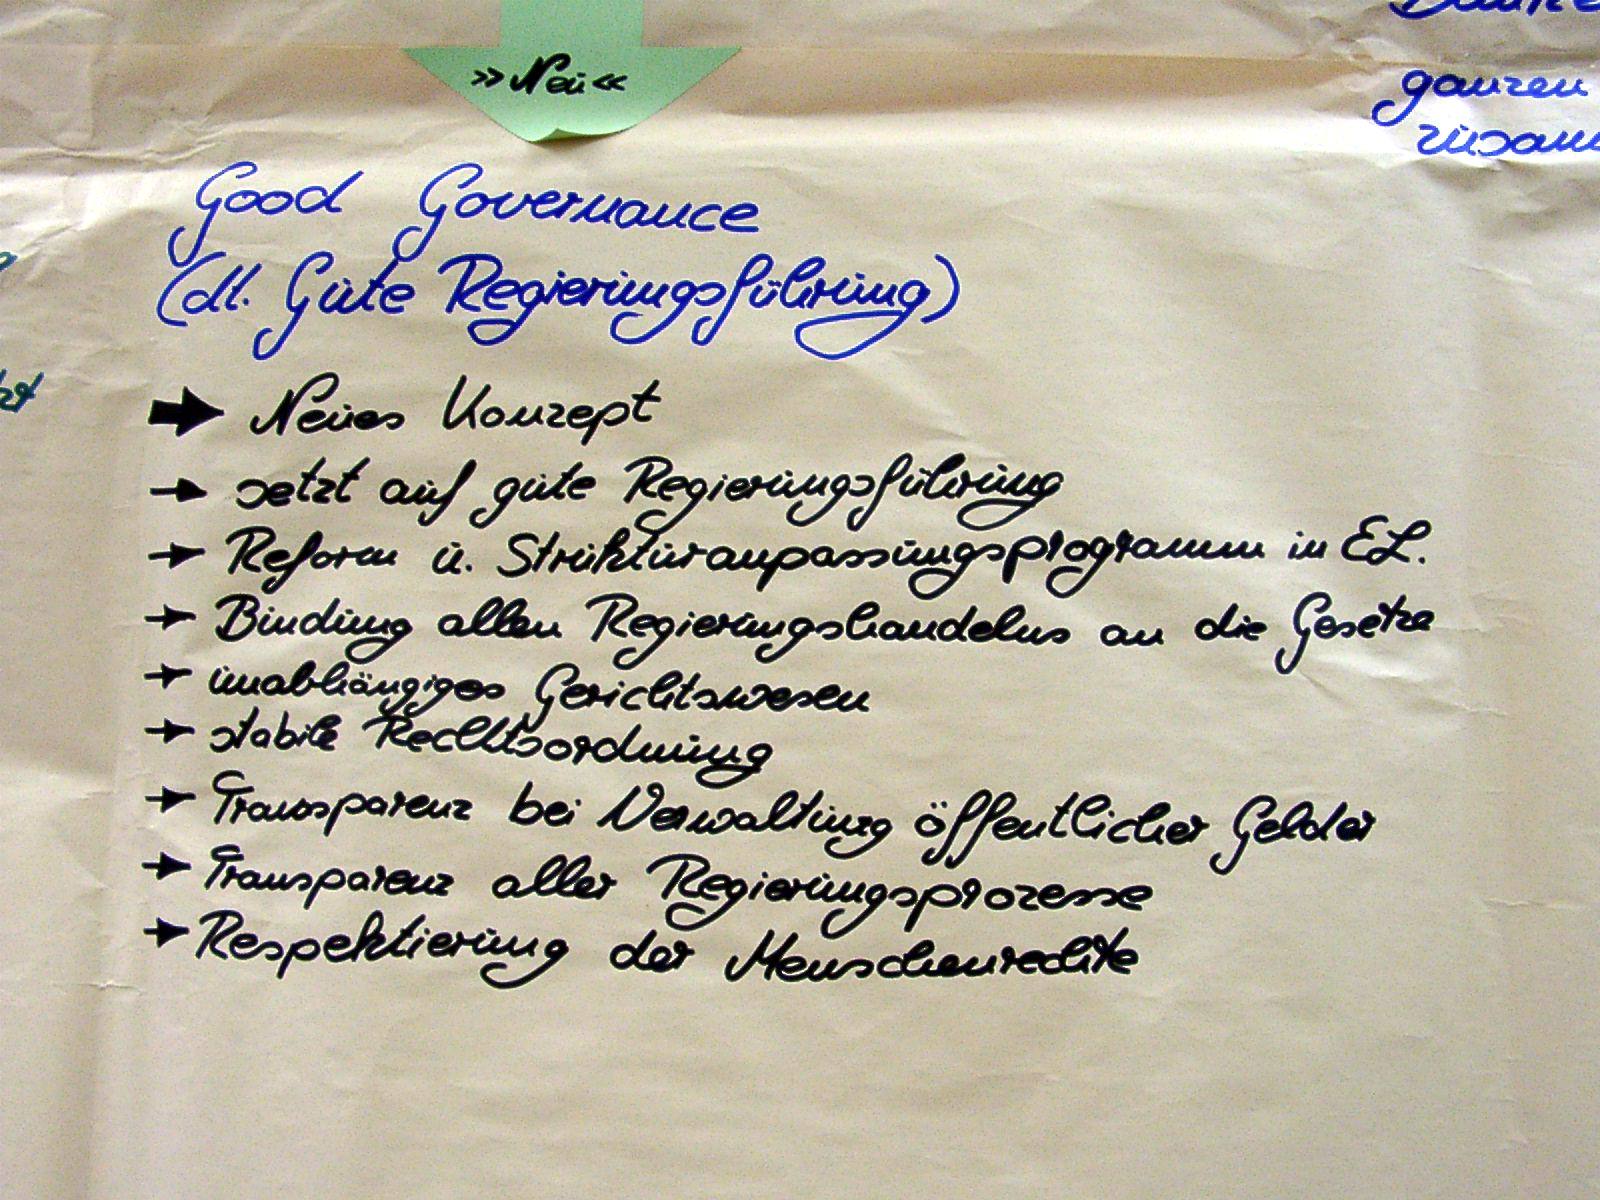 »Neu«
ganzen
Good Governance
(dt. Gute Regierungsführung)
Neues Konzept
setzt auf gute Regierungsführung
Reform u. Strukturanpassungsprogramm in EL.
Bindung allen Regierungshandelns an die Gesetze
unabhängiges Gerichtswesen
stabile Rechtsordnung
Transparenz bei Verwaltung öffentlicher Gelder
Transparenz aller Regierungsprozesse
Respektierung der Menschenrechte